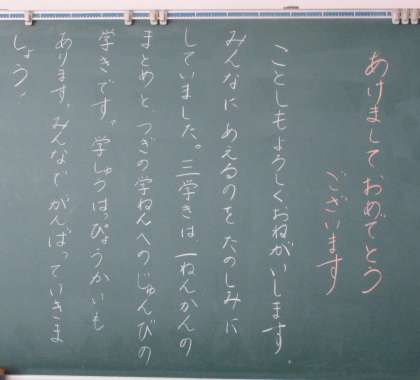 あけまして おめでとう
ございます
ことしもよろしくおねがいします。
みんなに あえるのを たのしみに
していました。三学きは、一ねんかんの
まとめと つぎの学ねんへの じゅんびの
学きです。学しゅうはっぴょうかいも
あります。みんなで がんばっていきま
しょう。